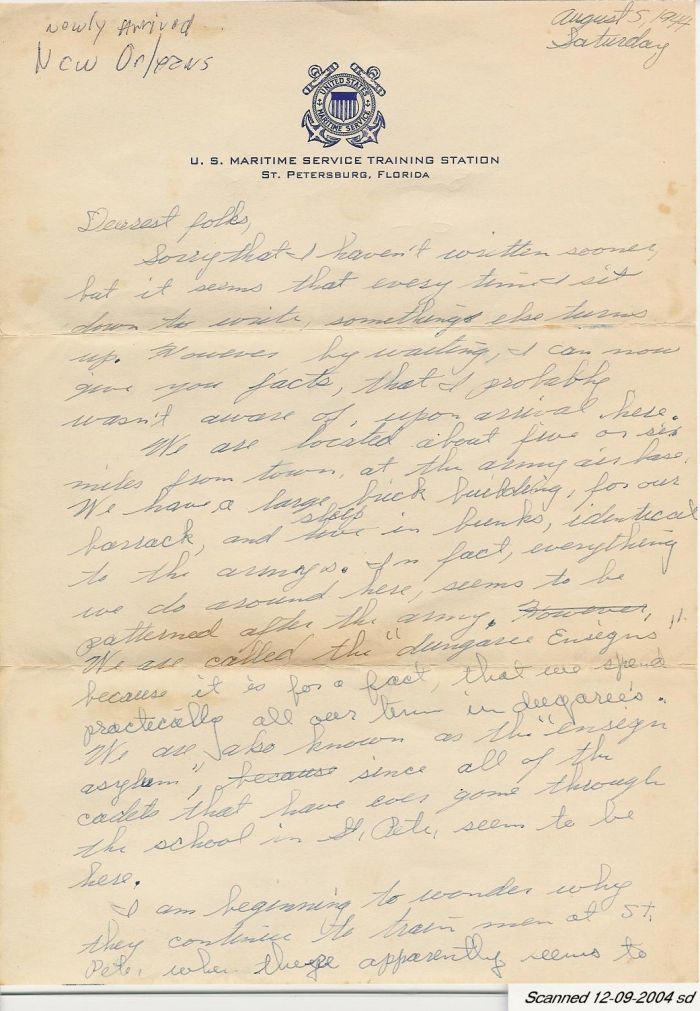 Newly Arrived
New Orleans
August 5, 1944
Saturday
UNITED STATES
MARITIME SERVICE
U. S. MARITIME SERVICE TRAINING STATION
ST. PETERSBURG, FLORIDA
Dearest folks,
Sorry that I haven't written sooner,
but it seems that every time I sit
down to write, somethings else turns
up. However by waiting, I can now
give you facts, that I probably
wasn't aware of, upon arrival here.
We are located about five or six
miles from town, at the army air base.
We have a large brick building, for our
barrack, and live sleep in bunks, identical
to the army's. In fact, everything
we do around here, seems to be
patterned after the army. However,
We are called the "dungaree Ensigns"
because it is for a fact, that we spend
practically all our term in dugarees.
We are also known as the "ensign
asylum", because since all of the
cadets that have ever gone through
the school in St. Pete, seem to be
here.
I am beginning to wonder why
they continue to train men at St.
Pete, when there apparently seems to
Scanned 12-09-2004 sd